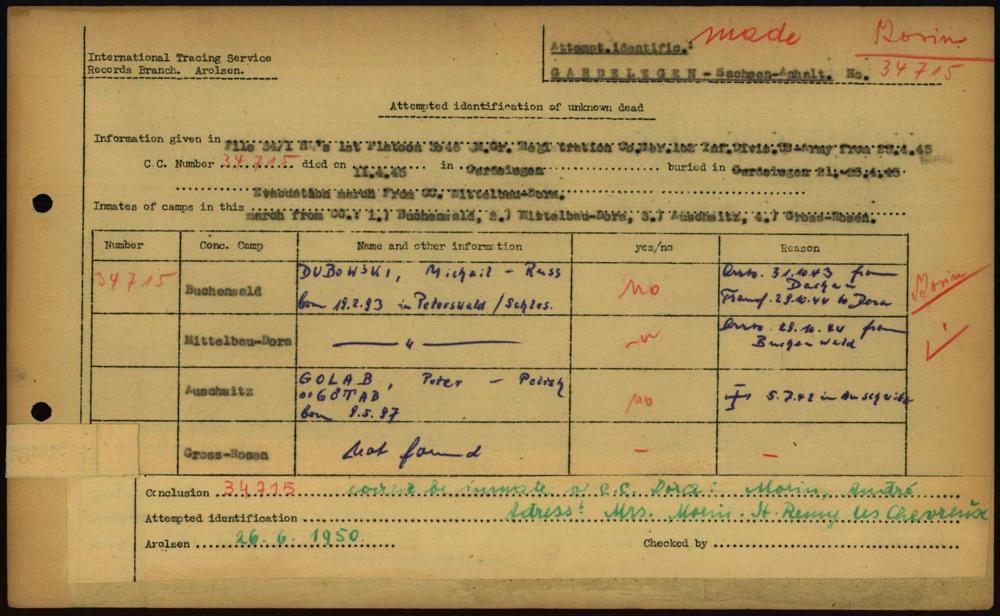 International Tracing Service
Records Branch. Arolsen.
Attempt.identific.: made Morin
GARDELEGEN - Sachsen-Anhalt. No. 34715
Attempted identification of unknown dead
Information given in File 84/I 1st Platoon Co. Inf.Divis.US-Army from
C.C. Number 34715 died on 11.4.45 in Gardelegen buried in Gardelegen 21.-25.4.45
Evacuation march from CC. Mittelbau-Dora.
Inmates of camps in this march from CC.: 1.) Buchenwald, 2.) Mittelbau-Dora, 3.) Auschwitz, 4.) Gross-Rosen.
Number Conc. Camp Name and other information yes/no Reason
34715 Buchenwald DUBOWSKI, Michail - Russ no 31.10.43 from Dachau
born 18.2.93 in Peterswald /Schles. Transf. 28.10.44 to Dora
Morin
Mittelbau-Dora — " — 28.10.44 from
Auschwitz GOLAB, Peter - no 5.7.42 in Auschwitz
born 8.5.97
Gross-Rosen Not found - -
Conclusion 34715 inmate of C.C. Dora: Morin, André
Attempted identification Adress: Mrs. Morin. St. Remy les Chevreuse
Arolsen 26.6.1950. Checked by